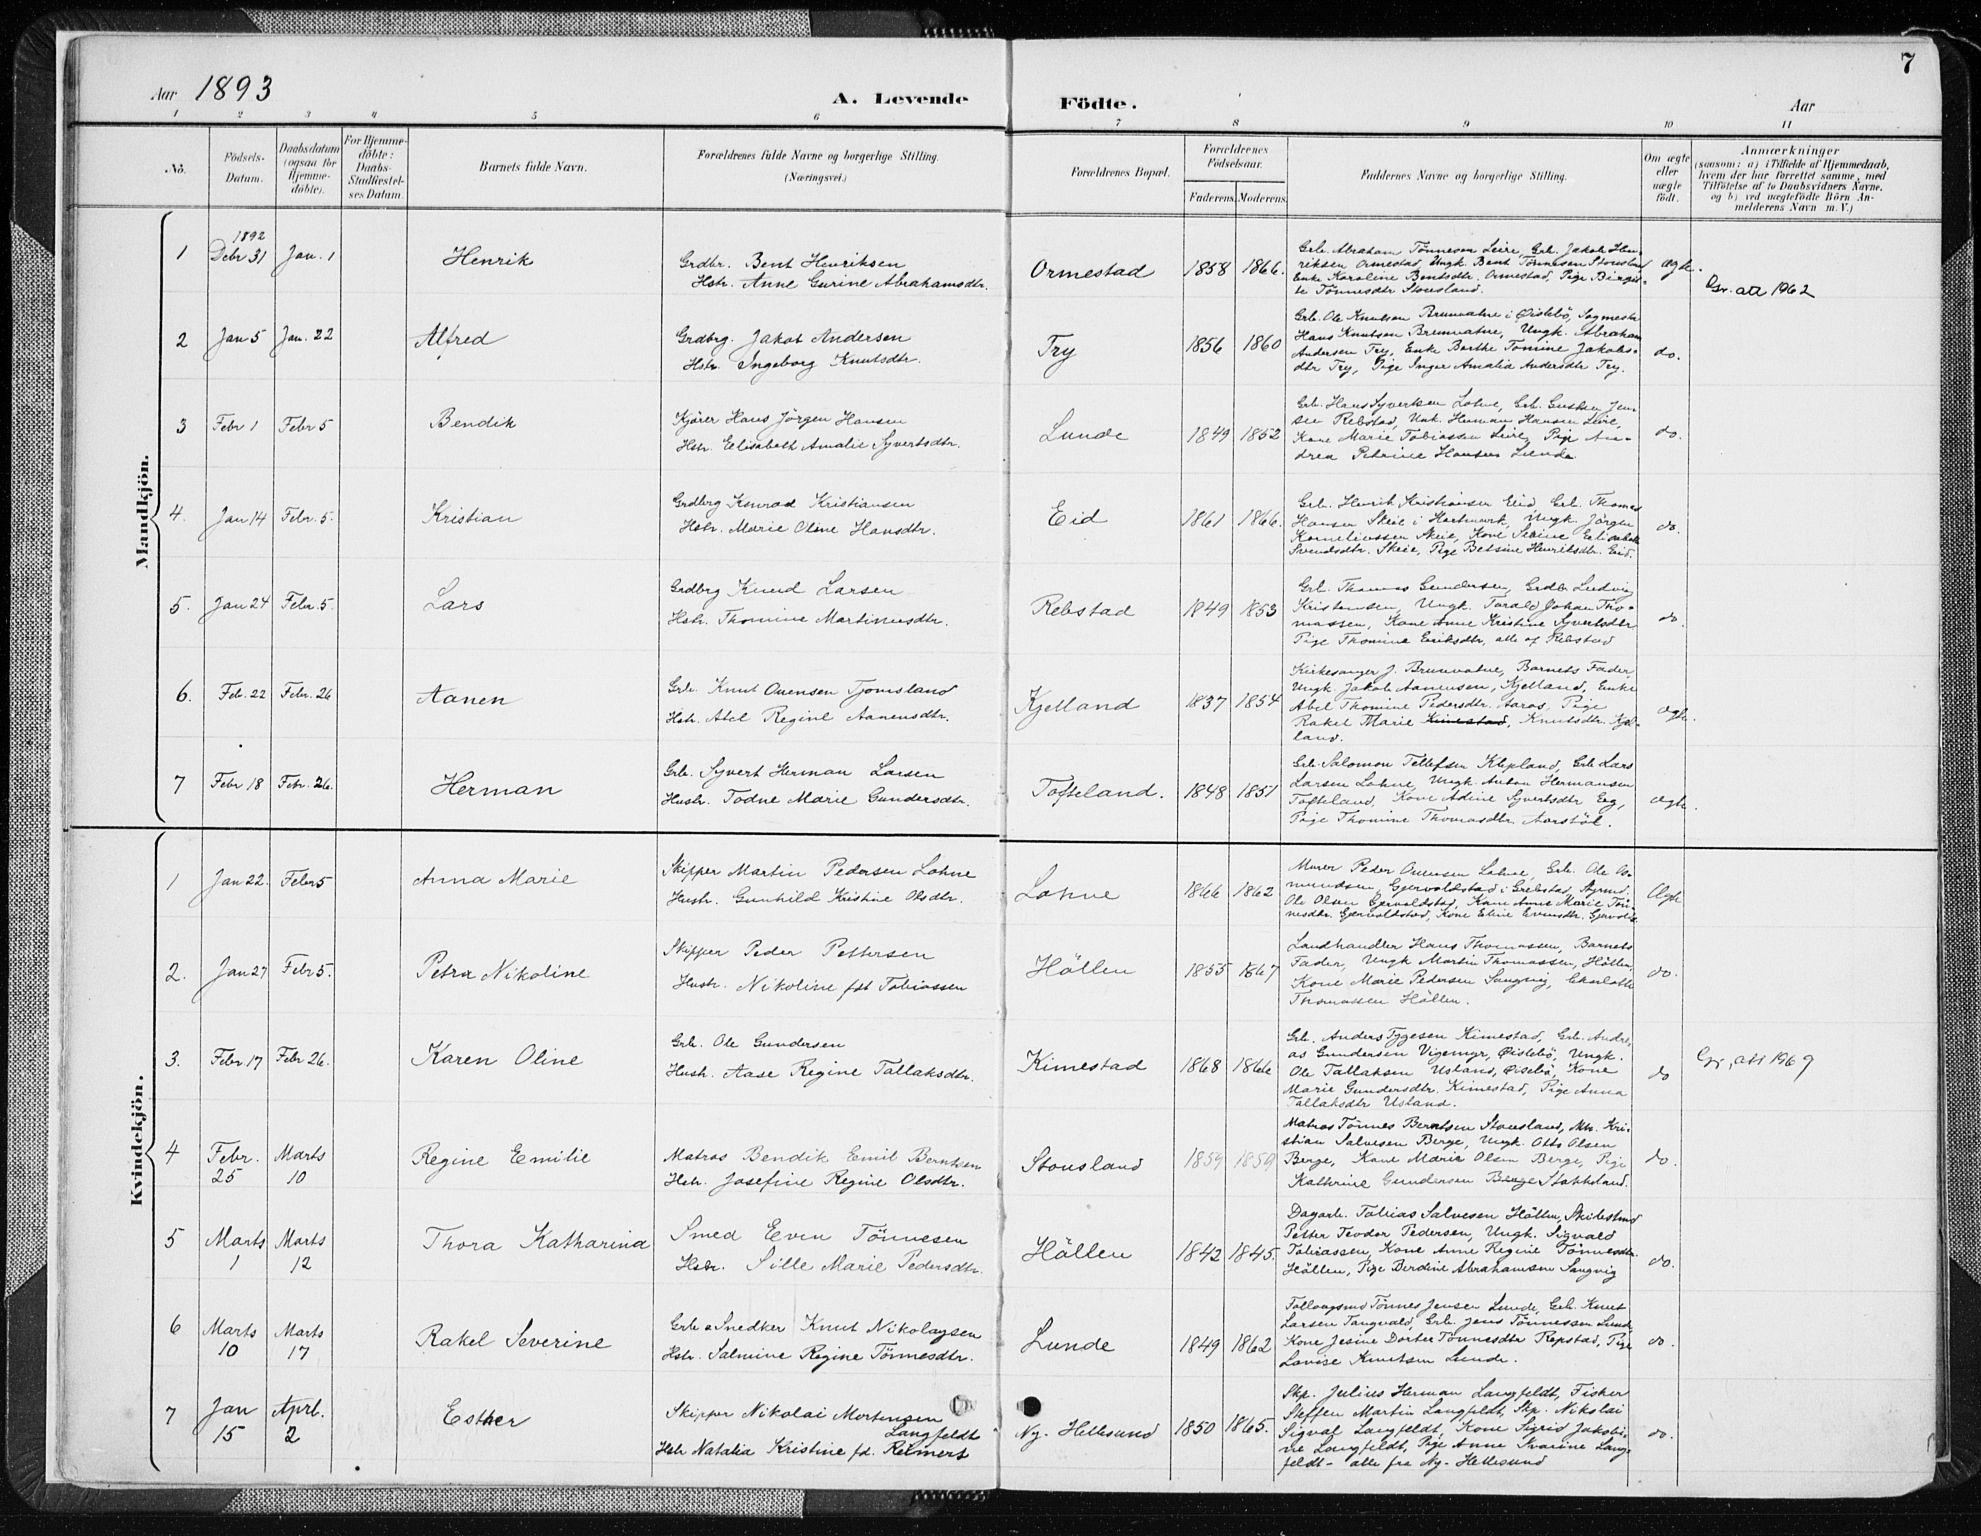 7
Aar 1893
A. Levende
Födte.
Aar
1 2 3 4 5 6 7 8 9 10 11
No.
Födsels-
Datum.
Daabsdatum
(ogsaa för
Hjemme-
döbte).
For Hjemme-
döbte:
Daabs-
Stadfæstel-
ses Datum.
Barnets fulde Navn.
Forældrenes fulde Navne og borgerlige Stilling.
(Næringsvei.)
Forældrenes Bopæl.
Forældrenes
Födselsaar.
Faderens. Moderens.
Faddernes Navne og borgerlige Stilling.
Om ægte
eller
uægte
födt.
Anmærkninger
(saasom: a) i Tilfælde af Hjemmedaab,
hvem der har forrettet samme, med
Tilföielse af to Daabsvidners Navne.
og b) ved uægtefödte Börn An-
melderens Navn m. V.)
Mandkjön.
1
1892
Debr 31
Jan. 1
Henrik
Grdbr. Bent Henriksen
Hstr. Anne Gurine Abrahamsdtr.
Ormestad
1858 1866.
Grb. Abraham Tönnesen Leire, Grb. Jakob Hen-
riksen Ormestad, Ungk. Bent Tönnesen Stousland
Enke Karoline Bentsdtr. Ormestad, Pige Birgit-
te Tönnesdtr Stousland.
ægte.
Gr. att 1962
2
Jan 5
Jan. 22
Alfred
Grdbrg. Jakob Andersen
Hstr. Ingeborg Knutsdtr.
Try
1856 1860
Grb. Ole Knutsen Brunvatne i Øislebö, Sogmestr
Hans Knutsen Brunvatne, Ungk. Abraham
Andersen Try, Enke Berthe Tomine Jakobs-
dtr Try, Pige Inger Amalia Andersdtr Try.
do.
3
Febr 1
Febr 5
Bendik
Kjører Hans Jörgen Hansen
Hstr. Elisabeth Amalie Syvertsdtr.
Lunde
1849 1852
Grb. Hans Syvertsen Lohne, Grb. Gustav Jen-
sen Rebstad, Unk. Herman Hansen Leire,
Kone Marie Tobiassen Leire, Pige An-
drea Petrine Hansen Lunde
do.
4.
Jan 14
Febr. 5.
Kristian
Grdbrg Konrad Kristiansen
Hstr. Marie Oline Hansdtr.
Eid
1861 1866.
Grb. Henrik Kristiansen Eid, Grb. Thomas
Hansen Skeie i Hartmark, Ungk. Jörgen
Korneliussen Skeie, Kone Sebine Elisabeth
Svendsdtr. Skeie, Pige Betsine Henriksdtr. Eid.
do.
5.
Jan 24
Febr. 5.
Lars
Grdbrg Knud Larsen
Hstr. Thomine Martinusdtr.
Rebstad
1849 1853
Grb. Thomas Gundersen, Grdb Ludvig
Kristensen, Ungk. Torald Johan Tho-
massen, Kone Anne Kristine Syvertsdtr
Pige Thomine Eriksdtr, alle af Rebstad
do.
6.
Feb. 22
Febr. 26
Aanen
Grb. Knut Ouensen Tjomsland
Hstr. Abel Regine Aanensdtr.
Kjelland
1837 1854
Kirkesanger J. Brunvatne, Barnets Fader,
Ungk. Jakob Aanensen, Kjelland, Enke
Abel Thomine Pedersdtr. Aaros, Pige
Rakel Marie Kimestad, Knutsdtr. Kjel-
land.
ægte.
7
Febr 18
Febr. 26.
Herman
Grb. Syvert Herman Larsen
Hustr. Todne Marie Gundersdtr.
Tofteland.
1848 1851
Grb. Salomon Tellefsen Klepland, Grb Lars
Larsen Lohne, Ungk. Anton Hermansen
Tofteland, Kone Adine Syvertsdtr Eeg,
Pige Thomine Thomasdtr. Aarstöl.
ægte.
Kvindekjön.
1
Jan 22.
Febr 5
Anna Marie
Skipper Martin Pedersen Lohne
Hustr. Gunhild Kristine Olsdtr.
Lohne
1866 1862
Murer Peder Ouensen Lohne, Grb. Ole As-
mundsen, Gjervoldstad i Grebstad, Styrmd.
Ole Olsen Gjervoldstad, Kone Anne Marie Tön-
nesdtr. Gjervoldstad, Kone Eline Evensdtr. Gjervolds
Ægte
2.
Jan 27
Febr 5.
Petra Nikoline
Skipper Peder Pettersen
Hustr. Nikoline fdt Tobiassen
Höllen
1855 1867
Landhandler Hans Thomassen, Barnets
Fader, Ungk Martin Thomassen, Höllen,
Kone Marie Pedersen Sangvig, Charlotte
Thomassen Höllen.
do.
3.
Febr 17
Febr 26.
Karen Oline
Grb. Ole Gundersen
Hustr. Aase Regine Tallaksdtr.
Kimestad
1868 1866
Grb. Anders Tygesen Kimestad, Grb. Andre-
as Gundersen Vigemyr, Øislebö, Ungk.
Ole Tallaksen Usland, Øislebö, Kone
Marie Gundersdtr. Kimestad, Pige Anna
Tallaksdtr Usland.
do
Gr. att 1969
4
Febr.
25
Marts
10
Regine Emilie
Matros Bendik Emil Berntsen
Hstr. Josefine Regine Olsdtr.
Stousland
1859 1859
Matros Tönnes Berntsen Stousland, Mtr. Kri-
stian Salvesen Berge, Ungk. Otto Olsen
Berge, Kone Marie Olsen Berge, Pige
Kathrine Gundersen Berge Stokkeland.
do.
5
Marts
1
Marts
12
Thora Katharina
Smed Even Tönnesen
Hstr. Sille Marie Pedersdtr.
Höllen
1842 1845.
Dagarb. Tobias Salvesen Höllen, Skibstmd
Petter Teodor Pedersen, Ungk. Sigvald
Tobiassen, Kone Anne Regine Tönnesdtr.
Höllen, Pige Berdine Abrahamsen Sangvig
do.
6
Marts
10
Marts
17
Rakel Severine
Grb o Snedker Knut Nikolaysen
Hstr. Salmine Regine Tönnesdtr.
Lunde
1849 1862
Follougsmd Tönnes Jensen Lunde, Grb. Knut
Larsen Tangvald, Grb. Jens Tönnessen Lunde
Kone Jesine Dorter Tönnesdtr Repstad, Pige
Lovise Knutsen Lunde.
do.
7
Jan
15
Aprl.
2
Esther
Skipper Nikolai Mortensen
Langfeldt
Hstr Natalia Kristine fd. Reimert
Ny-Hellesund
1850 1865.
Skp. Julius Herman Langfeldt, Fisker
Steffen Martin Langfeldt, Skp. Nikolai
Sigval Langfeldt, Kone Sigrid Jakobi-
ne Langfeldt, Pige Anne Tvarine Lang-
feldt - alle fra Ny-Hellesund
do.